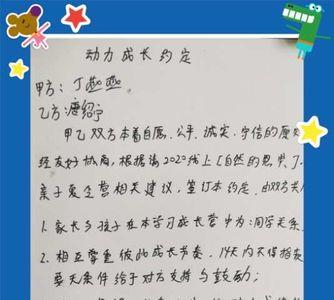 动力成长约定
甲方：丁
乙方：唐绍宁
甲乙双方本着自愿、公平、诚实、守信的原
经友好协商，根据 2020线上《自然的思
亲子夏令营相关建议，签订本约定，由双方
1. 家长与孩子在本学习成长营中为：同学关系
2. 相互尊重彼此成长节奏，14天内不得指责
要无条件给予对方支持与鼓励；